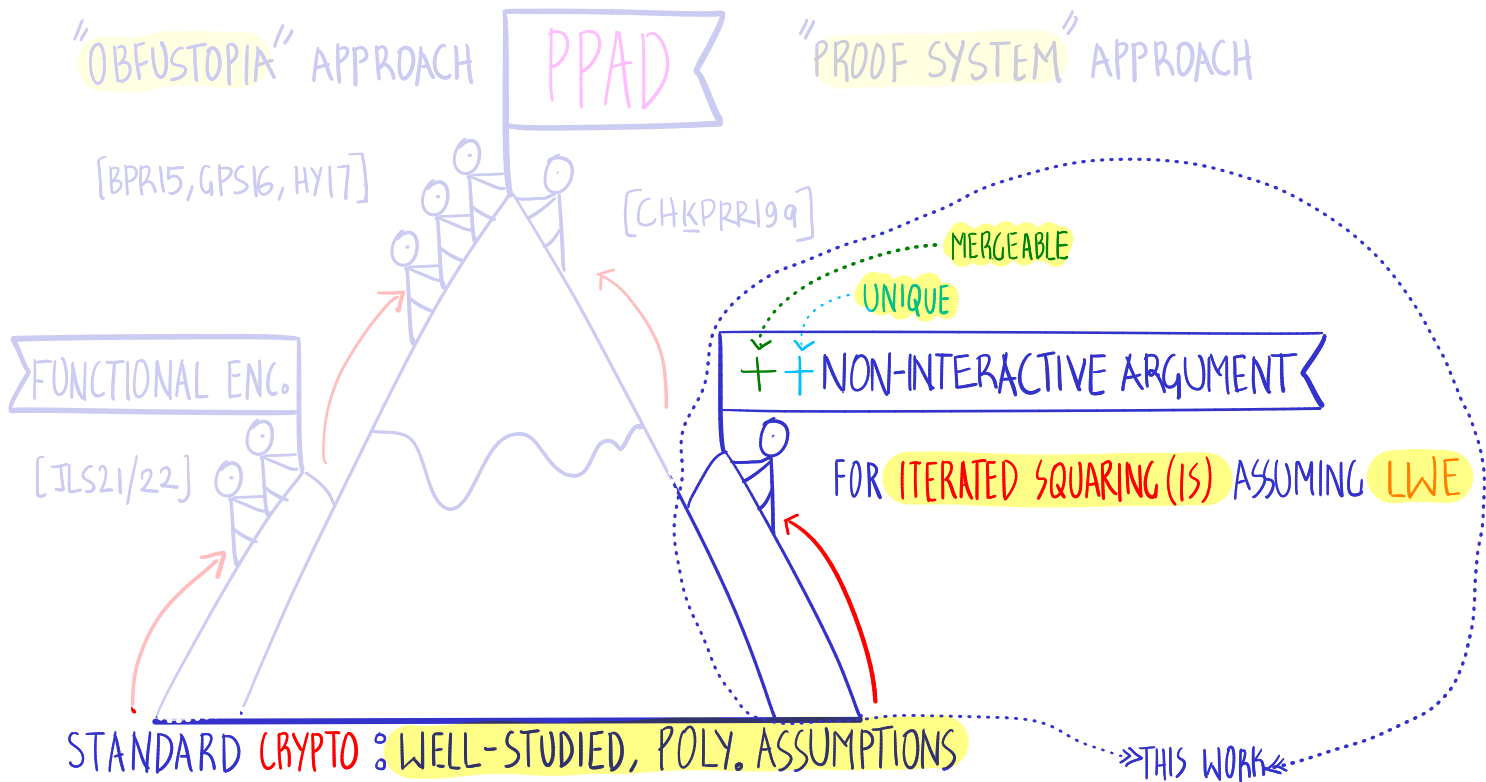 "OBFUSTOPIA" APPROACH
PPAD
"PROOF SYSTEM" APPROACH
[BPR15, GPS16, HY17]
[CHKPRR19a]
MERGEABLE
UNIQUE
FUNCTIONAL ENC.
+ + NON-INTERACTIVE ARGUMENT
[JLS21/22]
FOR ITERATED SQUARING (IS) ASSUMING LWE
STANDARD CRYPTO : WELL-STUDIED, POLY. ASSUMPTIONS
THIS WORK